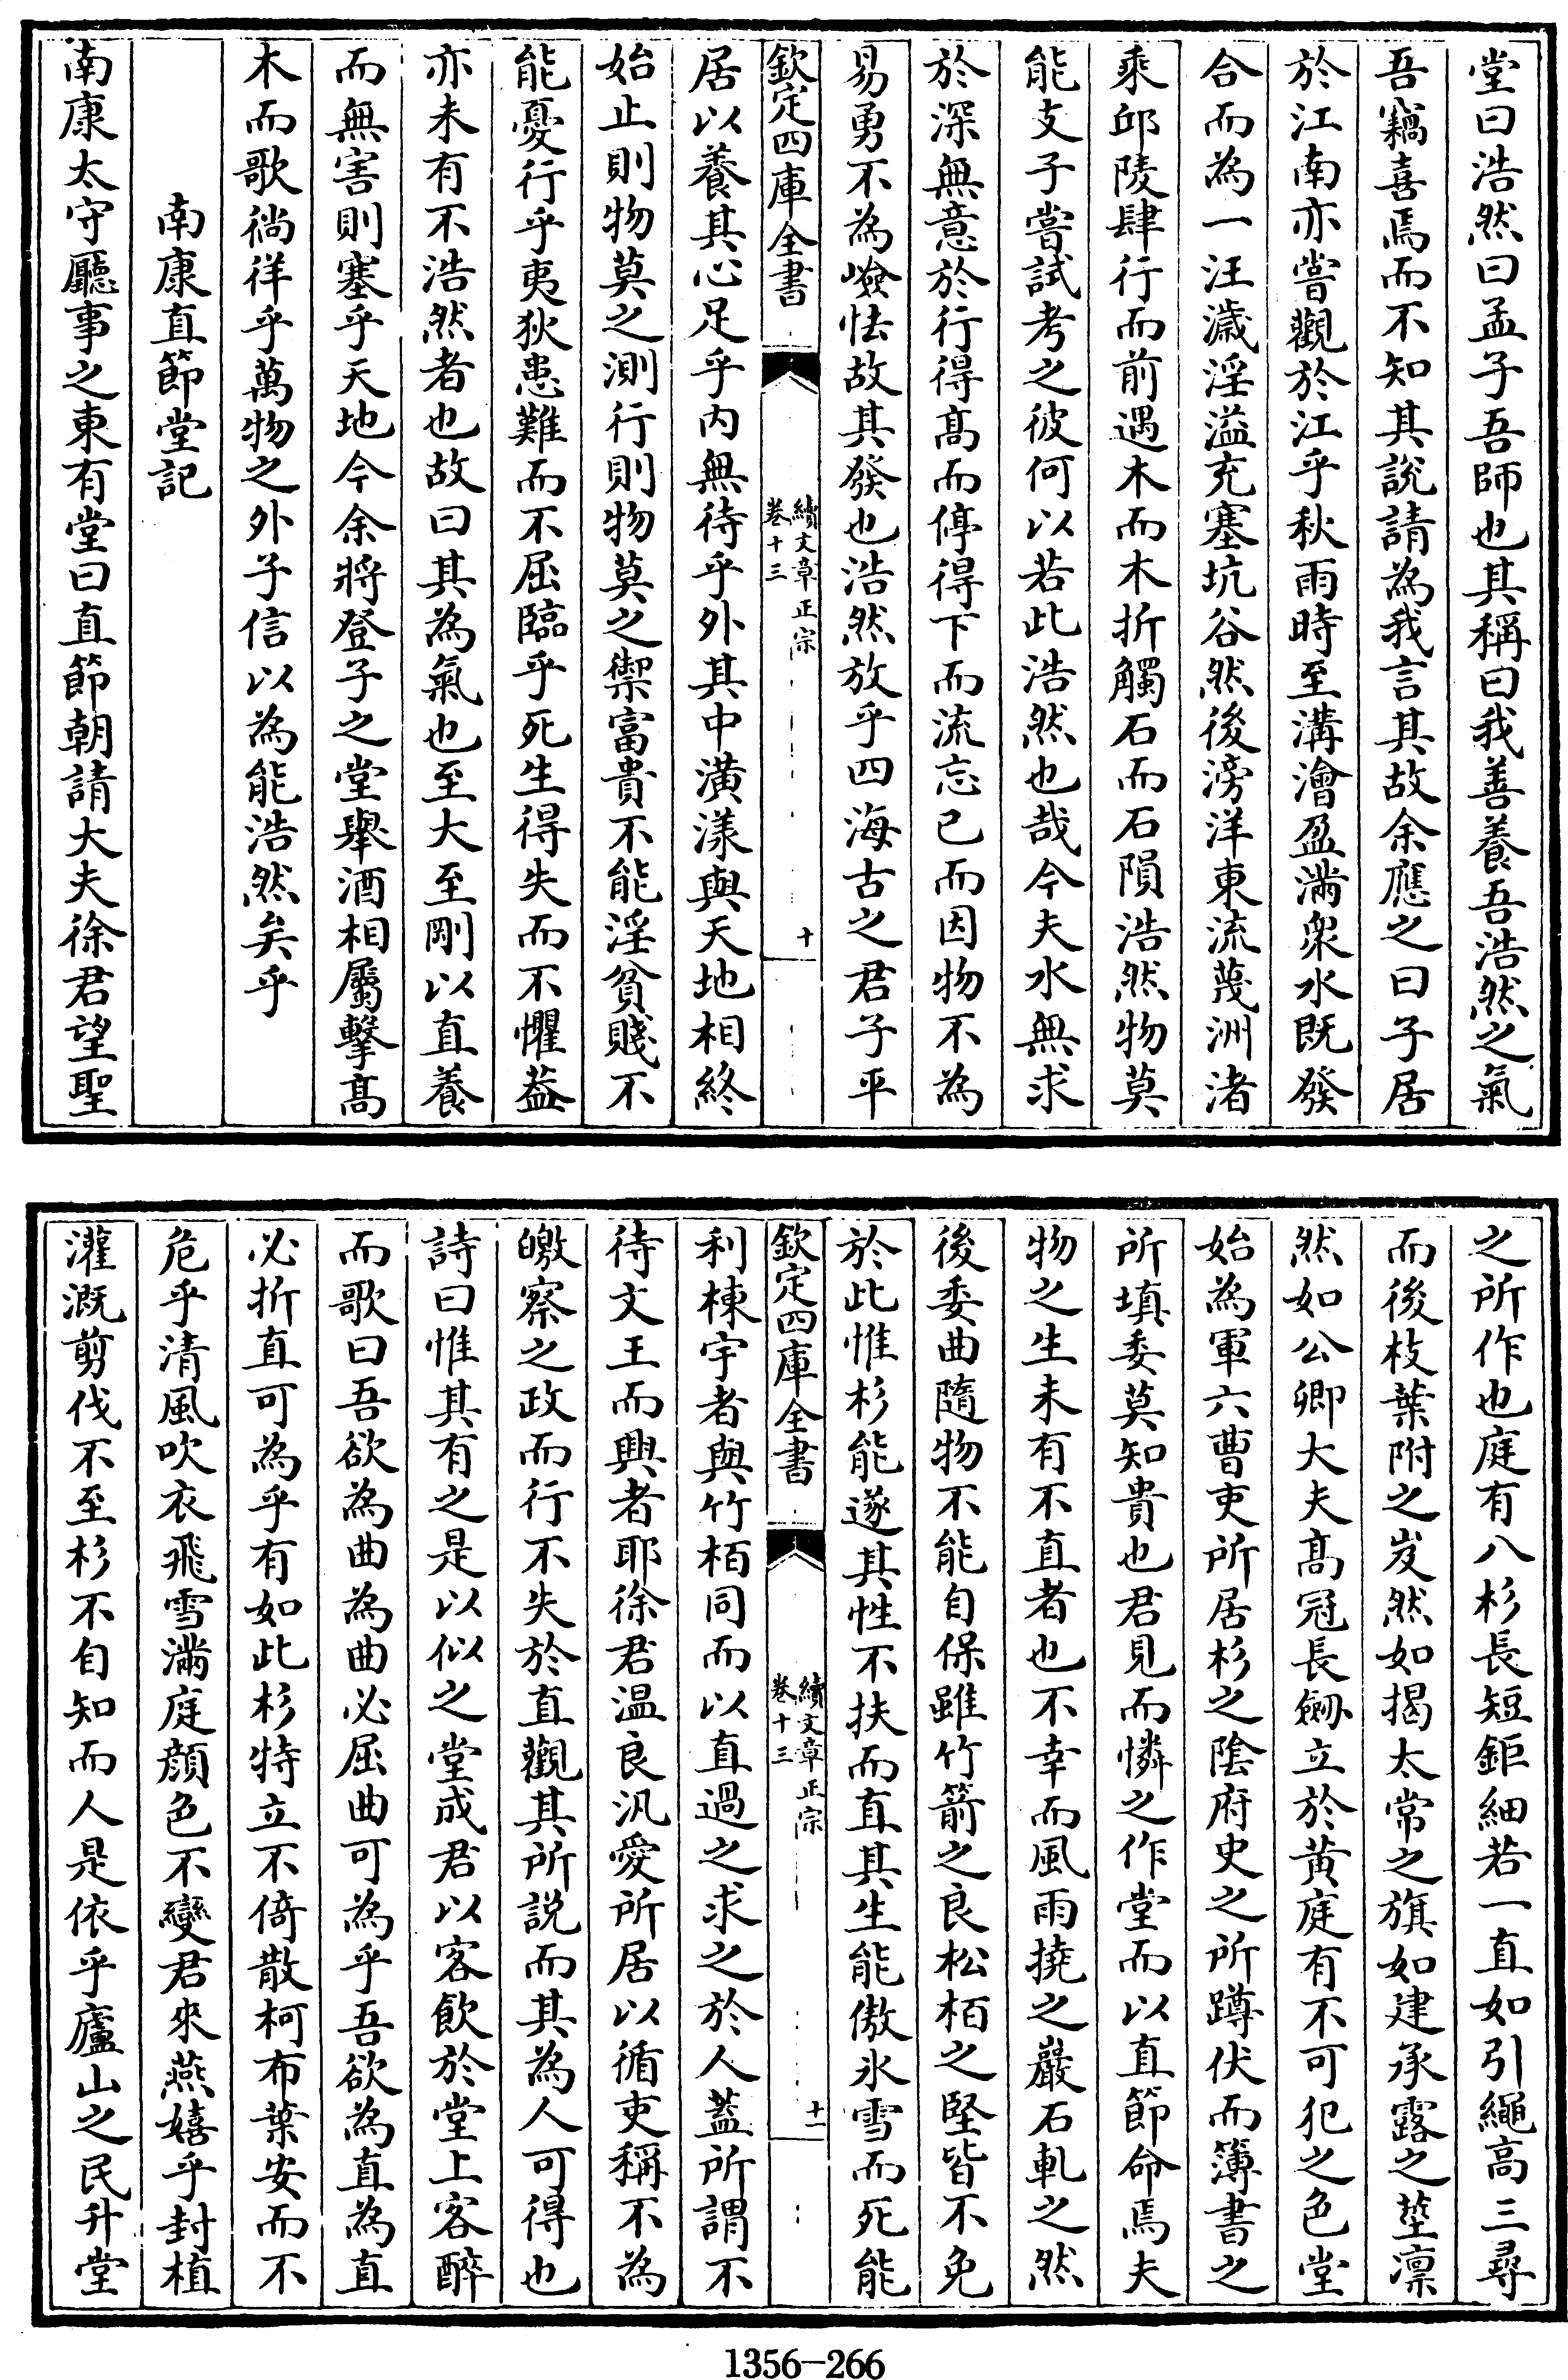 堂曰浩然曰孟子吾師也其稱曰我善養吾浩然之氣
吾竊喜焉而不知其說請為我言其故余應之曰子居
於江南亦嘗觀於江乎秋雨時至溝澮盈滿衆水既發
合而為一汪濊淫溢充塞坑谷然後滂洋東流蔑洲渚
乘邱陵肆行而前遇木而木折觸石而石隕浩然物莫
能支子嘗試考之彼何以若此浩然也哉今夫水無求
於深無意於行得髙而停得下而流忘已而因物不為
易勇不為嶮怯故其發也浩然放乎四海古之君子平
欽定四庫全書
續文章正宗
卷十三
十
居以養其心足乎内無待乎外其中潢漾與天地相終
始止則物莫之測行則物莫之禦富貴不能淫貧賤不
能憂行乎夷狄患難而不屈臨乎死生得失而不懼葢
亦未有不浩然者也故曰其為氣也至大至剛以直養
而無害則塞乎天地今余將登子之堂舉酒相屬擊髙
木而歌徜徉乎萬物之外子信以為能浩然矣乎
南康直節堂記
南康太守廳事之東有堂曰直節朝請大夫徐君望聖
之所作也庭有八杉長短鉅細若一直如引繩高三尋
而後枝葉附之岌然如揭太常之旗如建承露之莖凛
然如公卿大夫髙冠長劒立於黄庭有不可犯之色堂
始為軍六曹吏所居杉之陰府史之所蹲伏而簿書之
所填委莫知貴也君見而憐之作堂而以直節命焉夫
物之生未有不直者也不幸而風雨撓之巖石軋之然
後委曲隨物不能自保雖竹箭之良松栢之堅皆不免
於此惟杉能遂其性不扶而直其生能傲氷雪而死能
欽定四庫全書
續文章正宗
卷十三
十一
利棟宇者與竹栢同而以直過之求之於人蓋所謂不
待文王而興者耶徐君温良汎愛所居以循吏稱不為
皦察之政而行不失於直觀其所説而其為人可得也
詩曰惟其有之是以似之堂成君以客飲於堂上客醉
而歌曰吾欲為曲為曲必屈曲可為乎吾欲為直為直
必折直可為乎有如此杉特立不倚散柯布葉安而不
危乎清風吹衣飛雪滿庭顔色不變君來燕嬉乎封植
灌溉剪伐不至杉不自知而人是依乎廬山之民升堂
1356-266